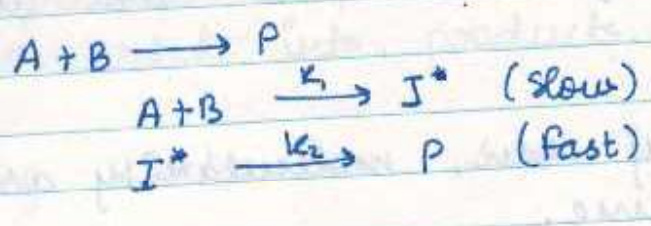 A + B ⟶ P
A + B —k₁→ I* (slow)
I* —k₂→ P (fast)